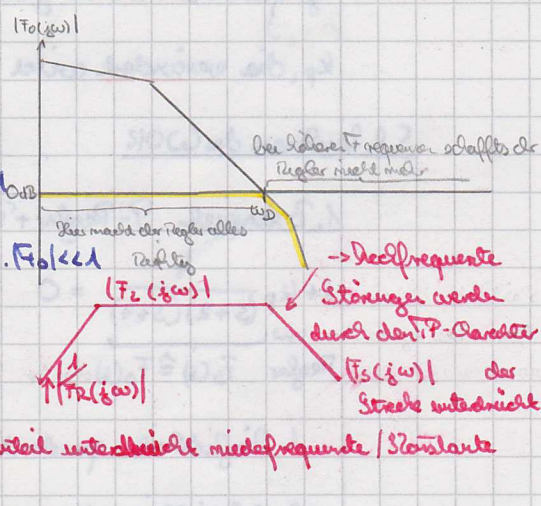 |F₀(jω)|
bei höheren Frequenzen schaffts der
Regler nicht mehr
0dB
ωD
Hier macht der Regler alles
Richtig
|F₀|<<1
|Fz(jω)|
-> Hochfrequente
Störungen werden
durch den TP-Charakter
|1/FR(jω)|
|Fs(jω)| der
Strecke unterdrückt
nteil unterdrückt niederfrequente / Konstante